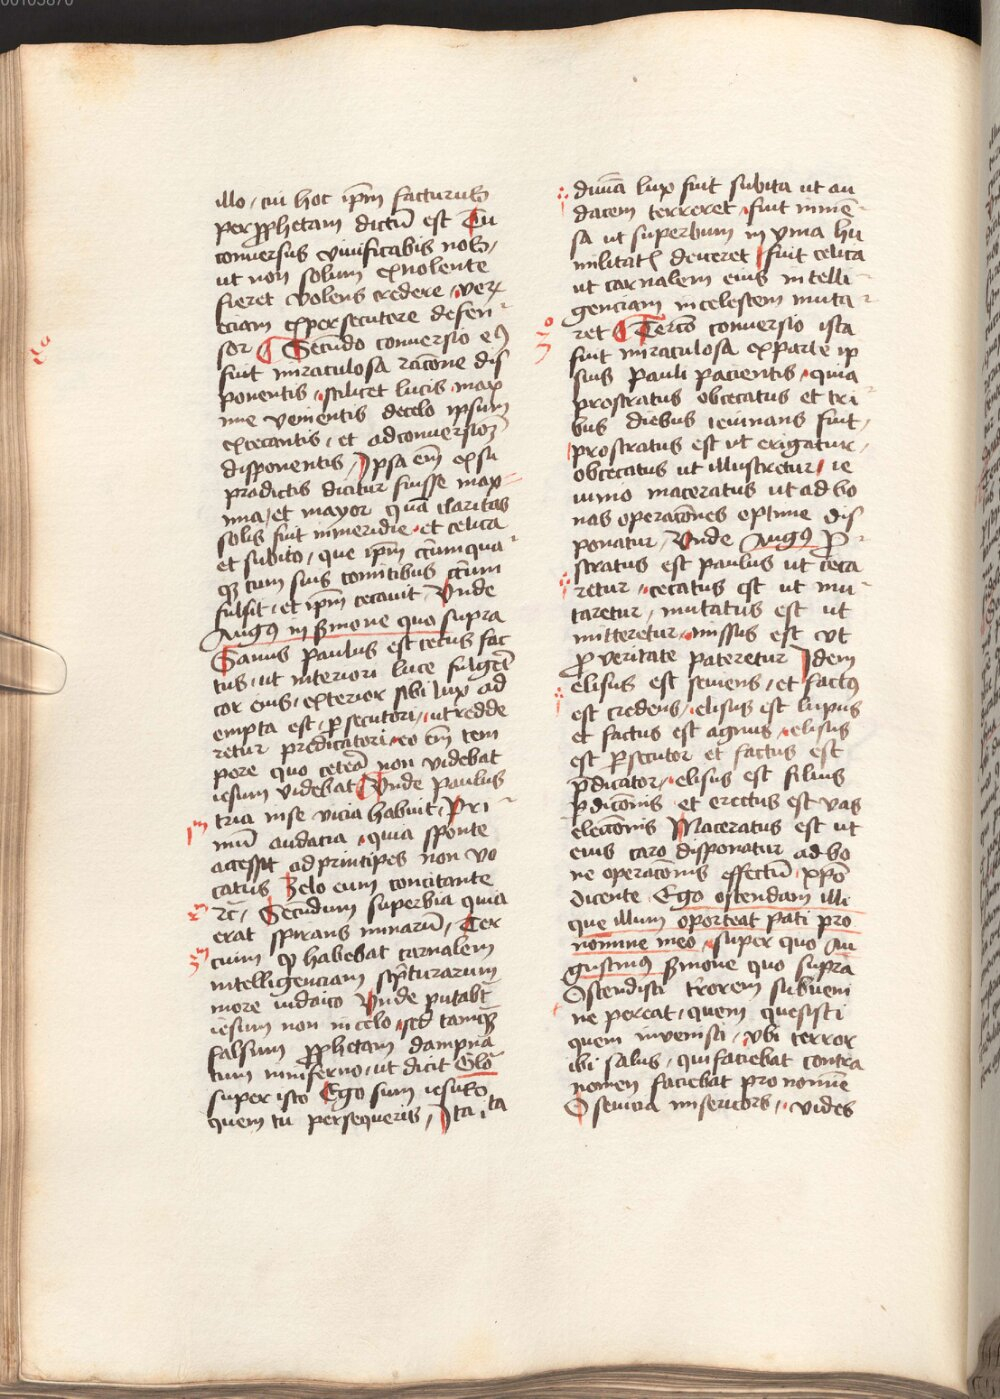 illo / cui hoc ip̄m facturus
per ꝓphetam dictū est Tu
conuersus viuificabis nos /
ut non solum ex nolente
fieret volens credere / veꝝ
eciam ex persecutore defen
sor Secundo conuersio eꝯ
fuit miraculosa racōne dis
ponentis / scilicet lucis max
ime venientis de celo ipsum
excecantis / et ad conuersioꝫ
disponentis / Ipsa em̄ ex su
pradictis dicitur fuisse max
ima / et mayor quā claritas
solis fuit in meridie / et celica
et subito / que ip̄m cūmqua
qꝫ cum suis comitibus circum
fulsit / et ip̄m cecauit / Unde
Augꝯ in sermone quo supra
Sanus paulus est cecus fac
tus / ut interiori luce fulgēt
cor eius / exterior sibi lux ad
empta est / ꝑsecutori / ut redde
retur predicatori / eo em̄ tem
pore quo ceterā non videbat
iesum videbat Unde Paulus
tria in se vicia habuit / Pri
mū audacia / quia sponte
accessit ad principes non vo
catus Zelo eum concitante
rc̄ / Secundum superbia quia
erat spirans minarū / Ter
cium ꝙ habebat carnalem
intelligenciam scripturarum
more iudaico Unde putabt̄
iesum non in celo / sed tamqꝫ
falsum ꝓphetam dampna
tum in inferno / ut dicit Glō
super isto Ego sum iesus
quem tu persequeris / Ita ita
diuīa lux fuit subita ut au
dacem terreret / fuit inmē
sa ut superbum in yma hu
militatꝭ deiceret / fuit celica
ut carnalem eius intelli
genciam in celestem muta
ret Tercō conuersio ista
fuit miraculosa ex parte ip
sius Pauli pacientis / quia
prostratus obcecatus et tri
bus diebus ieiunans fuit /
prostratus est ut erigatur /
obcecatus ut illustretur / ie
iunio maceratus ut ad bo
nas operacōnes optime dis
ponatur / Unde Augꝯ ꝓ
stratus est paulus ut ceca
retur / cecatus est ut mu
taretur / mutatus est ut
mitteretur / missus est vt
ꝓ veritate pateretur Idem
elisus est seuiens / et factꝯ
est credens / elisus est lupus
et factus est agnus / elisus
est ꝑsecutor et factus est
p̄dicator / elisus est filius
ꝑdicōnis et erectus est vas
eleccōnis Maceratus est ut
eius caro disponatur ad bo
ne operacōnis effectū xp̄o
dicente Ego ostendam illi
que illum oporteat pati pro
nomine meo / super quo Au
gustinꝯ sermone quo supra
Ostendisti trorem subueni
ne pereat / quem quesisti
quem inuenisti / vbi terror
ibi salus / qui faciebat contra
nomen faciebat pro nomīe
O seuicia misericors / vides